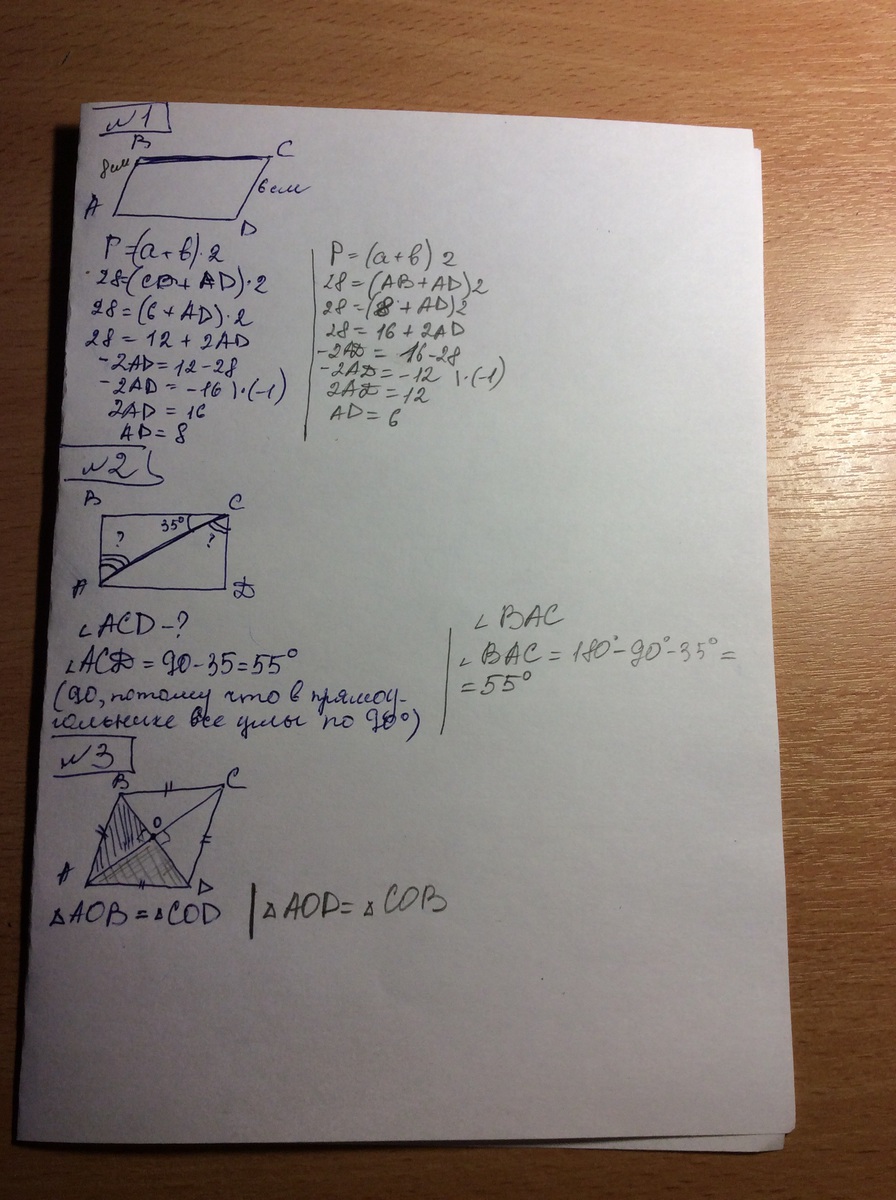 №1
B
C
8см
6см
A
D
P=(a+b)·2
28=(CD+AD)·2
28=(6+AD)·2
28=12+2AD
-2AD=12-28
-2AD=-16 |·(-1)
2AD=16
AD=8
P=(a+b)2
28=(AB+AD)2
28=(8+AD)2
28=16+2AD
-2AD=16-28
-2AD=-12 |·(-1)
2AD=12
AD=6
№2
B
C
35°
?
?
A
D
∠ACD-?
∠ACD=90-35=55°
(90, потому что в прямоу-
гольнике все углы по 90°)
∠BAC
∠BAC=180°-90°-35°=
=55°
№3
B
C
O
A
D
△AOB=△COD
△AOD=△COB